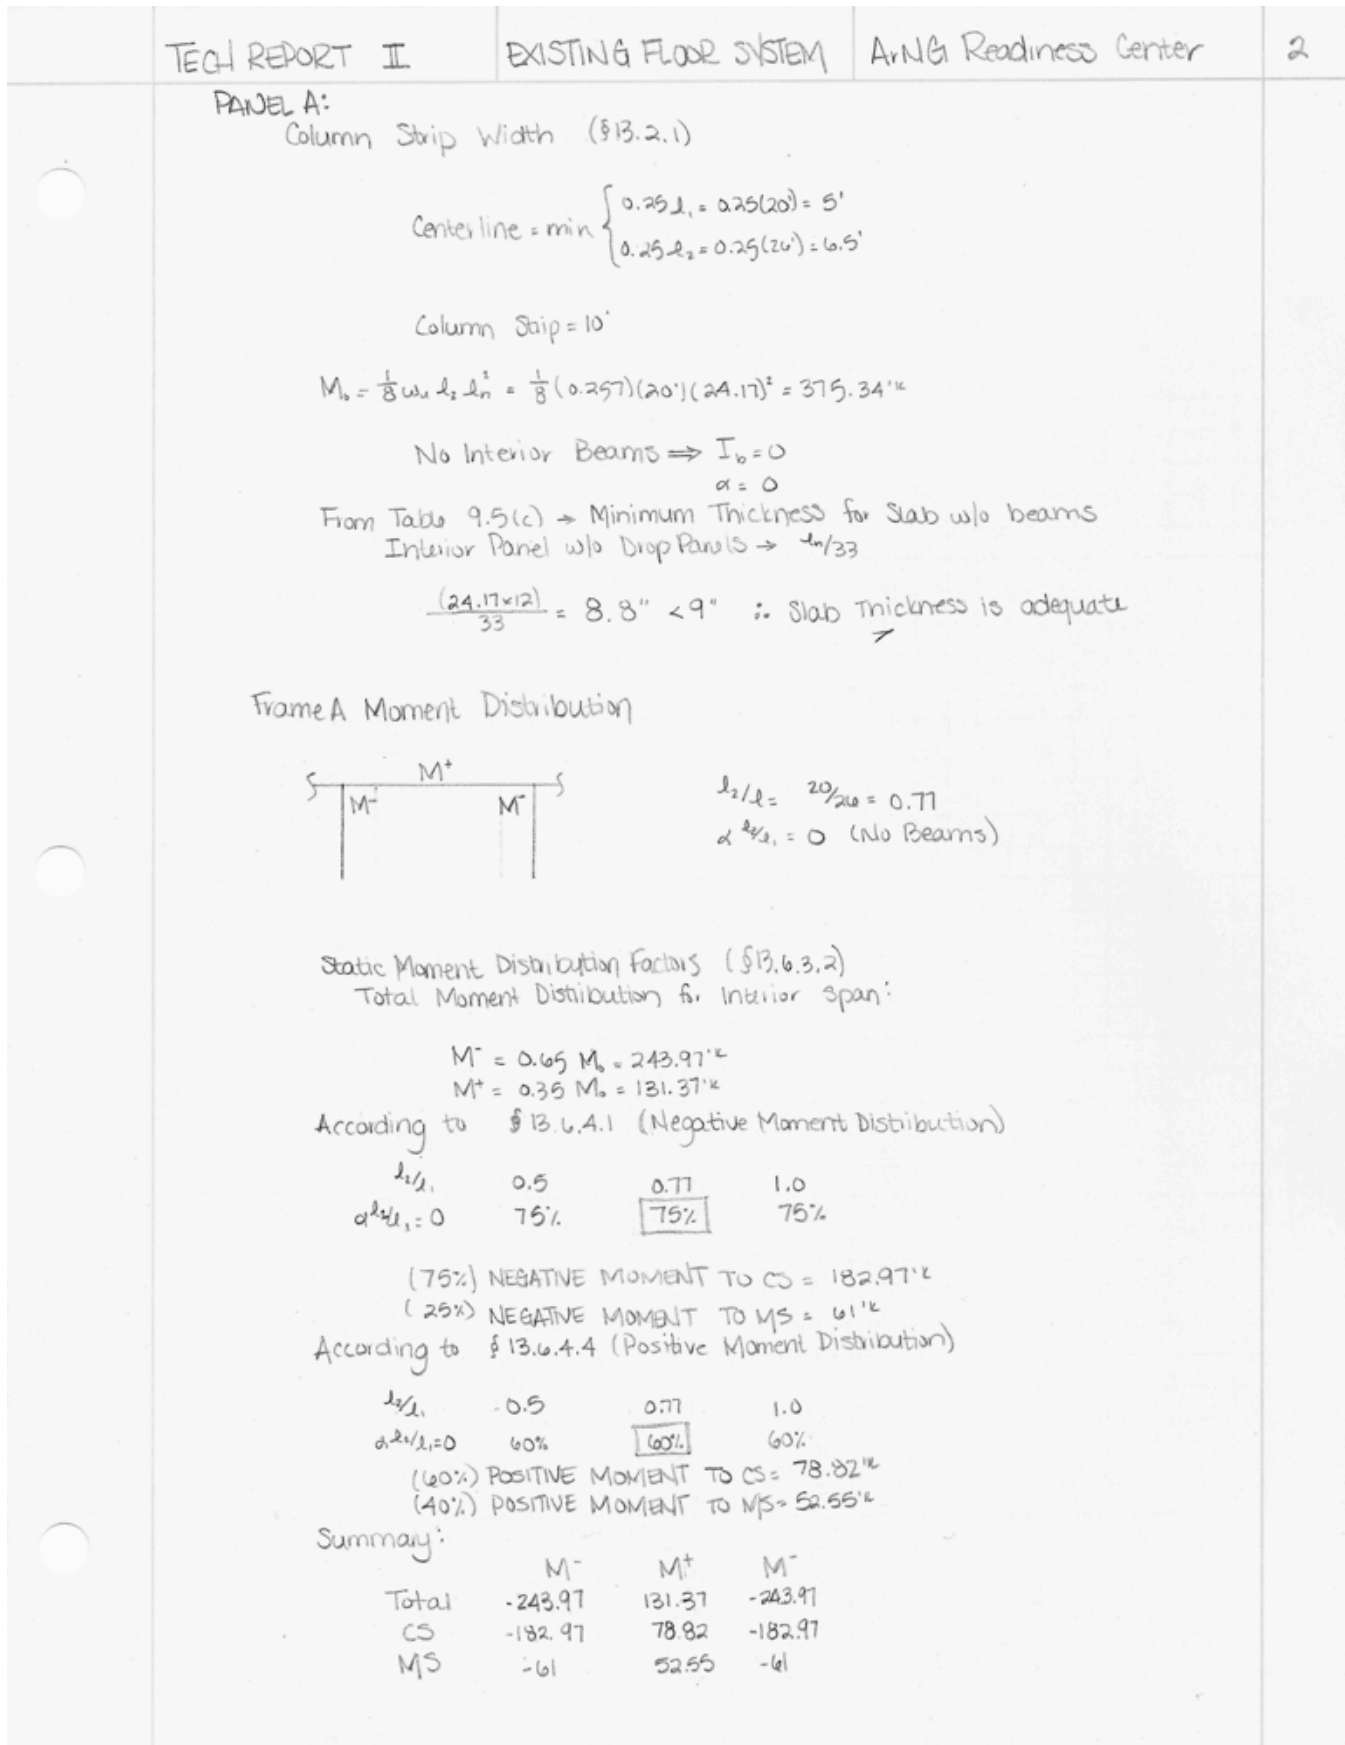 TECH REPORT II EXISTING FLOOR SYSTEM ArNG Readiness Center 2
PANEL A:
Column Strip Width (§13.2.1)
0.25 l₁ = 0.25(20') = 5'
Centerline = min {
0.25 l₂ = 0.25(26') = 6.5'
Column Strip = 10'
M₀ = 1/8 wᵤ l₂ lₙ² = 1/8 (0.257)(20')(24.17)² = 375.34'ᵏ
No Interior Beams ⇒ I_b = 0
α = 0
From Table 9.5(c) → Minimum Thickness for Slab w/o beams
Interior Panel w/o Drop Panels → lₙ/33
(24.17×12)/33 = 8.8" < 9" ∴ Slab Thickness is adequate
Frame A Moment Distribution
M⁺
M⁻ M⁻
l₂/l = 20/26 = 0.77
α l₂/l₁ = 0 (No Beams)
Static Moment Distribution Factors (§13.6.3.2)
Total Moment Distribution for Interior Span:
M⁻ = 0.65 M₀ = 243.97'ᵏ
M⁺ = 0.35 M₀ = 131.37'ᵏ
According to §13.6.4.1 (Negative Moment Distribution)
l₂/l₁ 0.5 0.77 1.0
α l₂/l₁ = 0 75% 75% 75%
(75%) NEGATIVE MOMENT TO CS = 182.97'ᵏ
(25%) NEGATIVE MOMENT TO MS = 61'ᵏ
According to §13.6.4.4 (Positive Moment Distribution)
l₂/l₁ 0.5 0.77 1.0
α l₂/l₁=0 60% 60% 60%
(60%) POSITIVE MOMENT TO CS = 78.82'ᵏ
(40%) POSITIVE MOMENT TO MS = 52.55'ᵏ
Summary:
M⁻ M⁺ M⁻
Total -243.97 131.37 -243.97
CS -182.97 78.82 -182.97
MS -61 52.55 -61